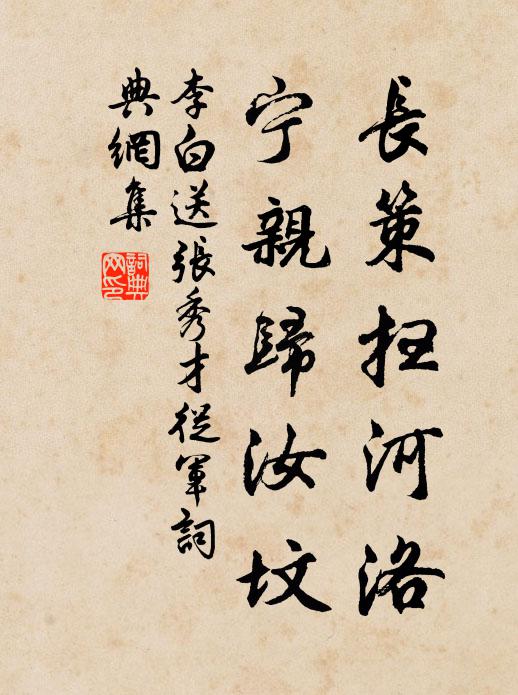 長策扫河洛
宁親歸汝坟
李白送張秀才從軍詞
典網集
詞典
网印